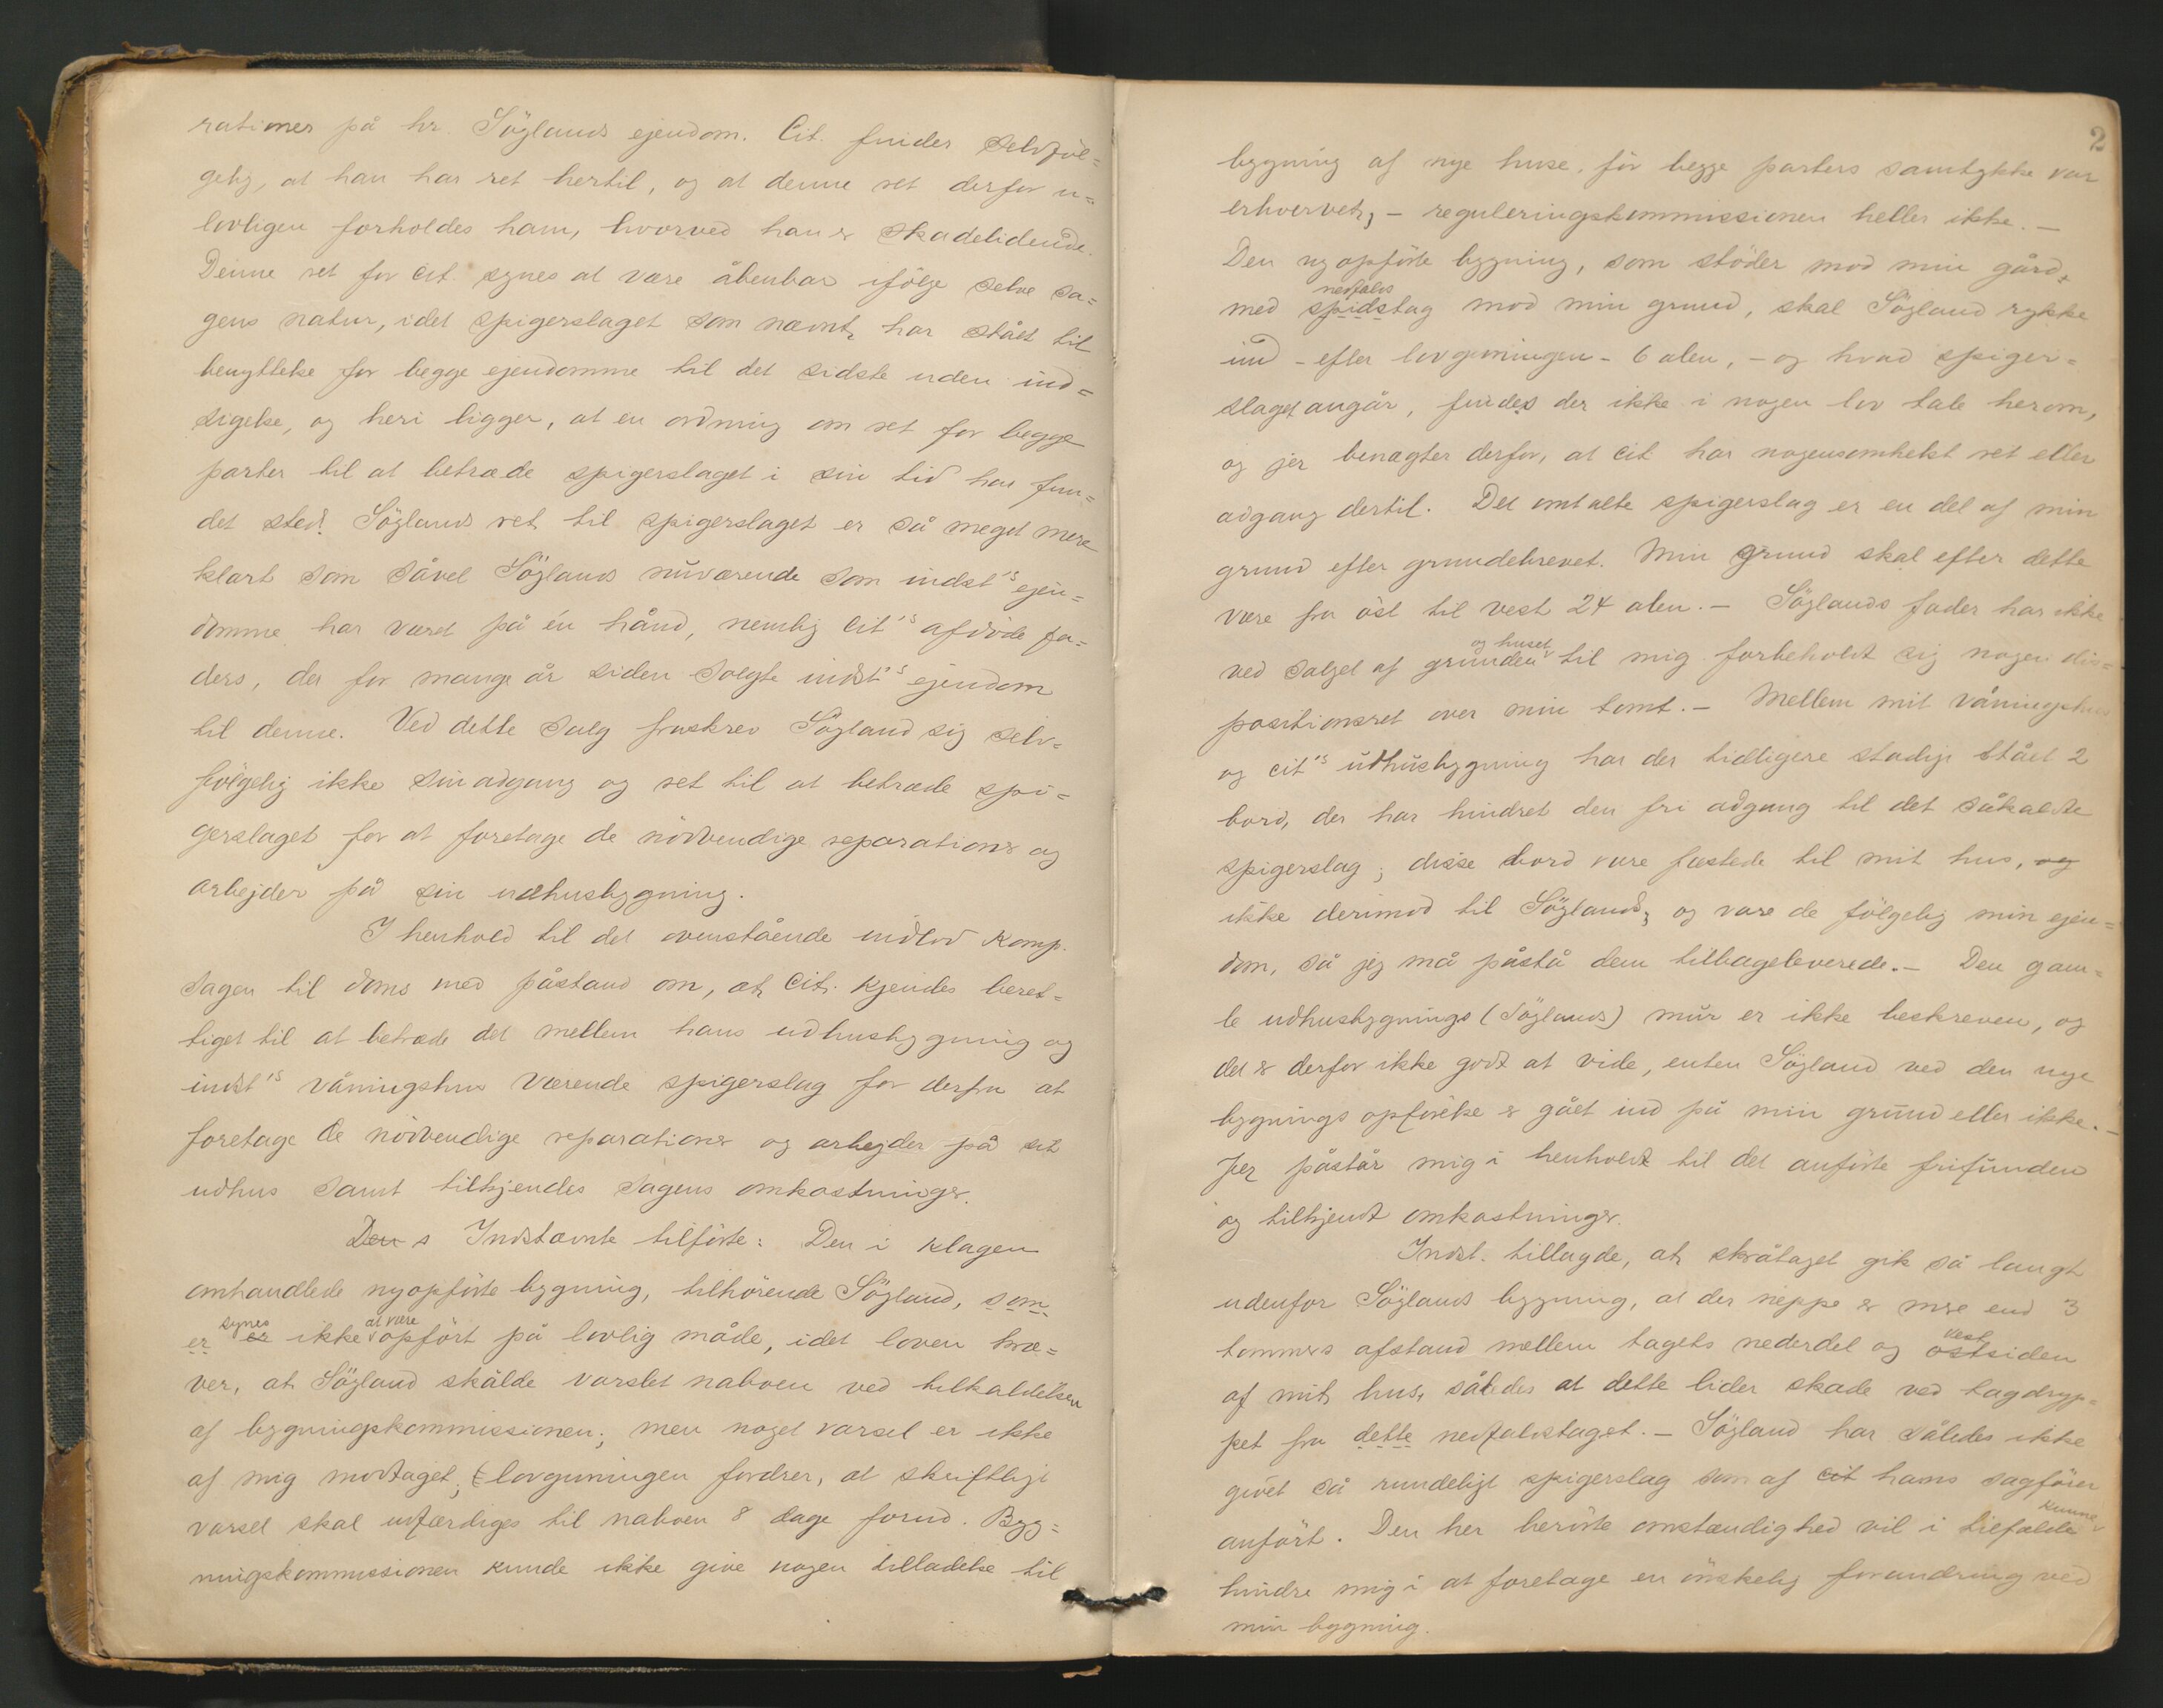 rationer på hr. Söglands ejendom. Cit. finder selvföl=
gelig, at han har ret hertil, og at denne ret derfor u=
lovligen forholdes ham, hvorved han er skadelidende.
Denne ret for cit. synes at være åbenbar ifölge selve sa=
gens natur, idet spigerslaget som nævnt, har stået til
benyttelse for begge ejendomme til det sidste uden ind=
sigelse, og heri ligger, at en ordning om ret for begge
parter til at betræde spigerslaget i sin tid har fun=
det sted. Söglands ret til spigerslaget er så meget mere
klart som såvel Söglands nuværende som indst's ejen=
domme har været på én hånd, nemlig cit's afdöde fa=
ders, der for mange år siden solgte indst's ejendom
til denne. Ved dette salg fraskrev Sögland sig selv=
fölgelig ikke sin adgang og ret til at betræde spi=
gerslaget for at foretage de nödvendige reparationer og
arbejder på sin udhusbygning.
I henhold til det ovenstående indlod komp.
sagen til doms med påstand om, at cit. kjendes beret=
tiget til at betræde det mellem hans udhusbygning og
indst's våningshus værende spigerslag for derfra at
foretage de nödvendige reparationer og arbejder på sit
udhus samt tilkjendes sagens omkostninger.
Den s Indstævnte tilförte: Den i klagen
omhandlede nyopförte bygning, tilhörende Sögland, som
er synes er ikke at være opfört på lovlig måde, idet loven kræ=
ver, at Sögland skulde varslet naboen ved tilkaldelsen
af bygningskommissionen; men noget varsel er ikke
af mig modtaget; lovgivningen fordrer, at skriftligt
varsel skal udfærdiges til naboen 8 dage forud. Byg=
ningskommissionen kunde ikke give nogen tilladelse til
2
bygning af nye huse, för begge parters samtykke var
erhvervet, – reguleringskommissionen heller ikke. –
Den nyopförte bygning, som stöder mod min gård,
med nedfalds spidstag mod min grund, skal Sögland rykke
ind – efter lovgivningen – 6 alen, – og hvad spiger=
slaget angår, findes der ikke i nogen lov tale herom,
og jeg benægter derfor, at cit. har nogensomhelst ret eller
adgang dertil. Det omtalte spigerslag er en del af min
grund efter grundebrevet. Min grund skal efter dette
være fra öst til vest 24 alen. – Söglands fader har ikke
ved salget af grunden og huset til mig forbeholdt sig nogen dis=
positionsret over min tomt. – Mellem mit våningshus
og cit's udhusbygning har der tidligere stadigt stået 2
bord, der har hindret den fri adgang til det såkaldte
spigerslag; disse bord vare fæstede til mit hus, og
ikke derimod til Söglands, og vare de fölgelig min ejen=
dom, så jeg må påstå dem tilbageleverede. – Den gam=
le udhusbygnings (Söglands) mur er ikke beskreven, og
det er derfor ikke godt at vide, enten Sögland ved den nye
bygnings opförelse er gået ind på min grund eller ikke. –
Jeg påstår mig i henhold til det anförte frifunden
og tilkjendt omkostninger.
Indst. tillagde, at skråtaget gik så langt
udenfor Söglands bygning, at der neppe er mere end 3
tommers afstand mellem tagets nederdel og vest ostsiden
af mit hus, således at dette lider skade ved tagdryp=
pet fra dette nedfaldstaget. – Sögland har således ikke
givet så rundeligt spigerslag som af cit hans sagförer
anfört. Den her berörte omstændighed vil i tilfælde kunne
hindre mig i at foretage en önskelig forandring ved
min bygning.